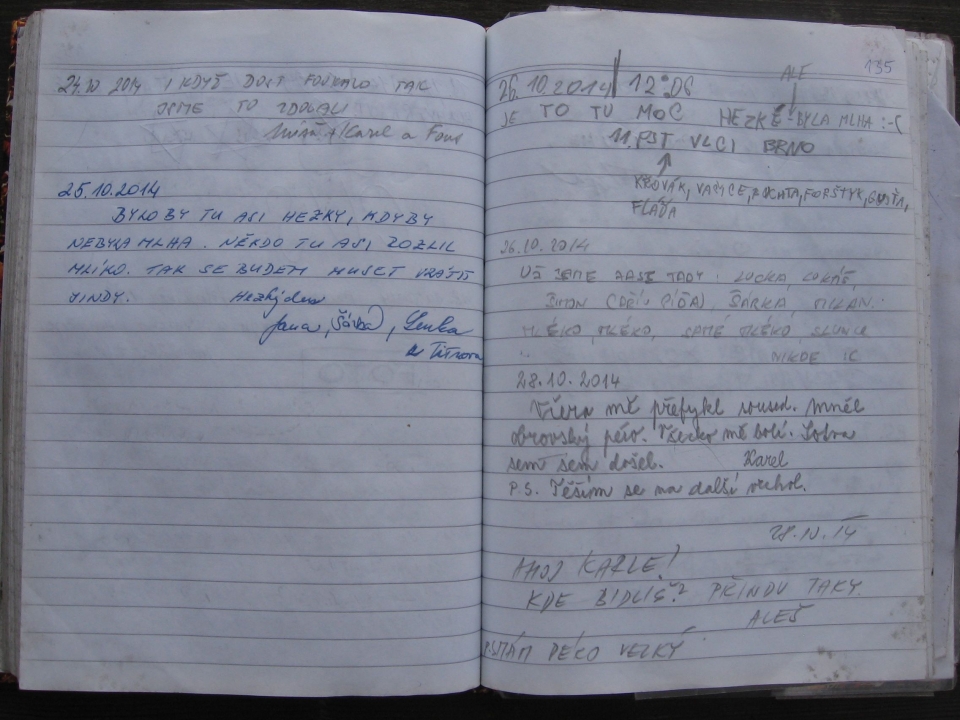 24.10 2014 I KDYŽ DOST FOUKALO TAK
JSME TO ZDOLALI
Míša + Karel a
25.10.2014
BYLO BY TU ASI HEZKY, KDYBY
NEBYLA MLHA. NĚKDO TU ASI ROZLIL
MLÍKO. TAK SE BUDEM MUSET VRÁTIT
JINDY. Hezký den
Jana, Šárka, Lenka
z Tišnova
135
26.10.2014 12:06 ALE
JE TO TU MOC HEZKÉ - BYLA MLHA :-(
11. PST VLCI BRNO
KŘOVÁK, VAŠICE, FORŠTYK,
FLÁĎA
26.10.2014
UŽ JSME ZASE TADY. LUCKA, LUKÁŠ,
ŠÁRKA, MILAN.
MLÉKO, MLÉKO, SAMÉ MLÉKO, SLUNCE
NIKDE
28.10.2014
Včera mě přefykl soused. Mněl
obrovský péro. Všecko mě bolí. Sotva
sem sem došel. Karel
P.S. Těšim se na další vrchol.
28.10.14
AHOJ KARLE!
KDE BIDLIŠ? PŘINDU TAKY.
ALEŠ
MÁM PÉRO VELKÝ